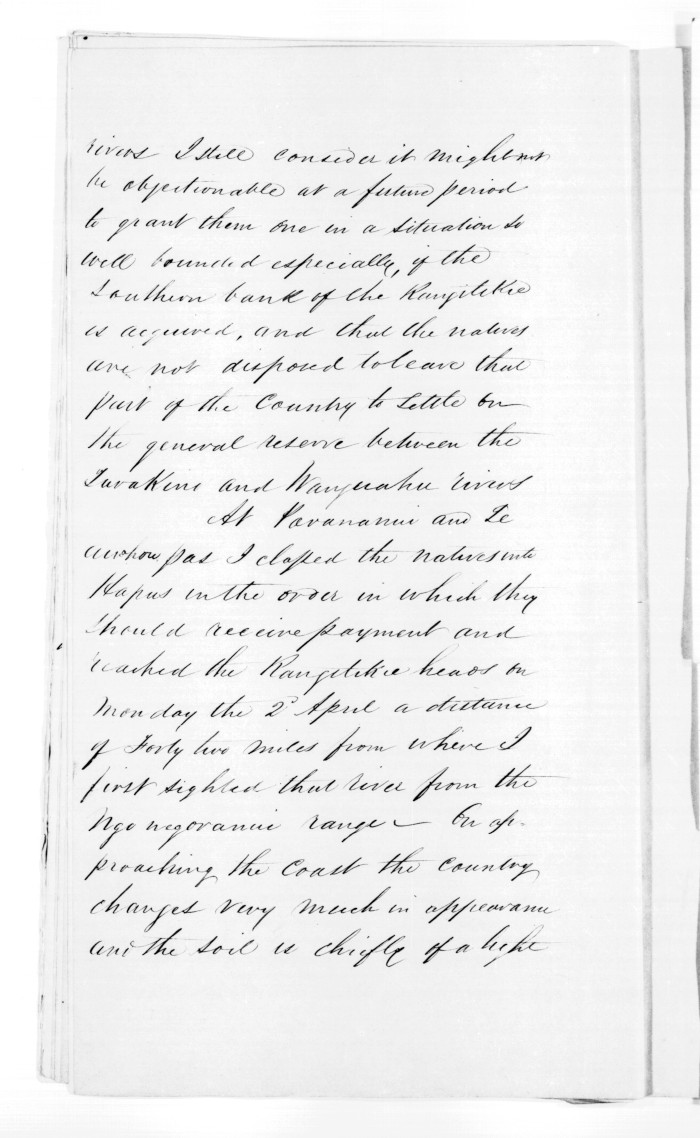 rivers I still consider it might not
be objectionable at a future period
to grant them one in a situation so
well bounded especially, if the
Southern bank of the Rangitikie
is acquired, and that the natives
are not disposed to leave that
part of the Country to settle on
the general reserve between the
Turakina and Wanguahu rivers
At Parananui and Te
pas I classed the natives into
Hapus in the order in which they
should receive payment and
reached the Rangitikie heads on
Monday the 2d April a distance
of Forty two miles from where I
first sighted that river from the
range — On ap-
proaching the Coast the Country
changes very much in appearance
and the soil is chiefly of a light